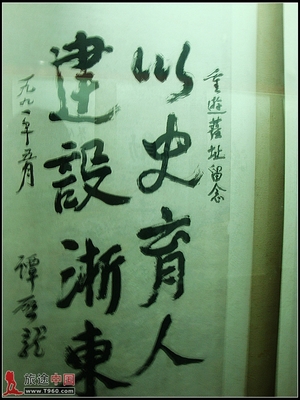 重遊舊址留念
以史育人
建設浙東
一九九一年五月
譚啓龍
旅途中国
www.T960.com